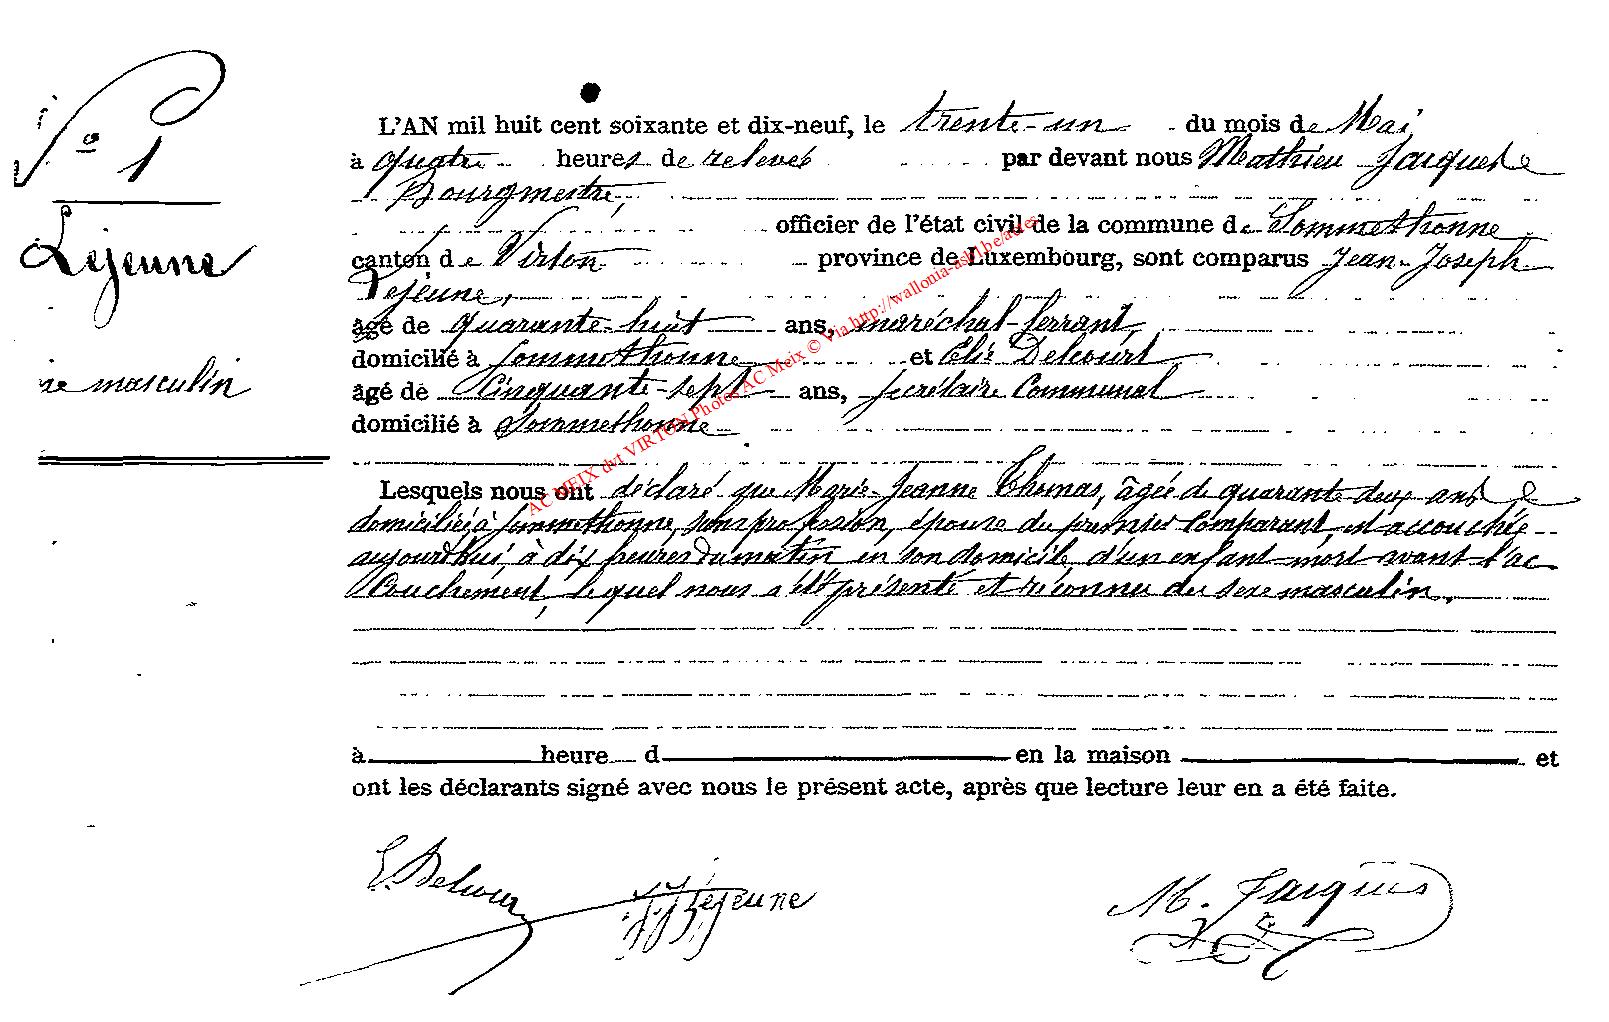 N° 1
Lejeune
masculin
L'AN mil huit cent soixante et dix-neuf, le trente-un du mois de Mai
à quatre heures de relevée par devant nous Mathieu Jacques
Bourgmestre,
officier de l'état civil de la commune de Sommethonne
canton de Virton province de Luxembourg, sont comparus Jean-Joseph
Lejeune,
âgé de quarante-huit ans, maréchal-ferrant,
domicilié à Sommethonne et Elie Delcourt
âgé de Cinquante-sept ans, secrétaire Communal
domicilié à Sommethonne
Lesquels nous ont déclaré que Marie-Jeanne Thomas, âgée de quarante deux ans
domiciliée à Sommethonne, sans profession, épouse du premier Comparant, est accouchée
aujourd'hui, à dix heures du matin en son domicile, d'un enfant mort avant l'ac
couchement, lequel nous a été présenté et reconnu du sexe masculin.
à heure d en la maison et
ont les déclarants signé avec nous le présent acte, après que lecture leur en a été faite.
E. Delcourt JJ Lejeune M. Jacques
AC MEIX dvt VIRTON Photos AC Meix © Via http://wallonia-asbl.be/actes